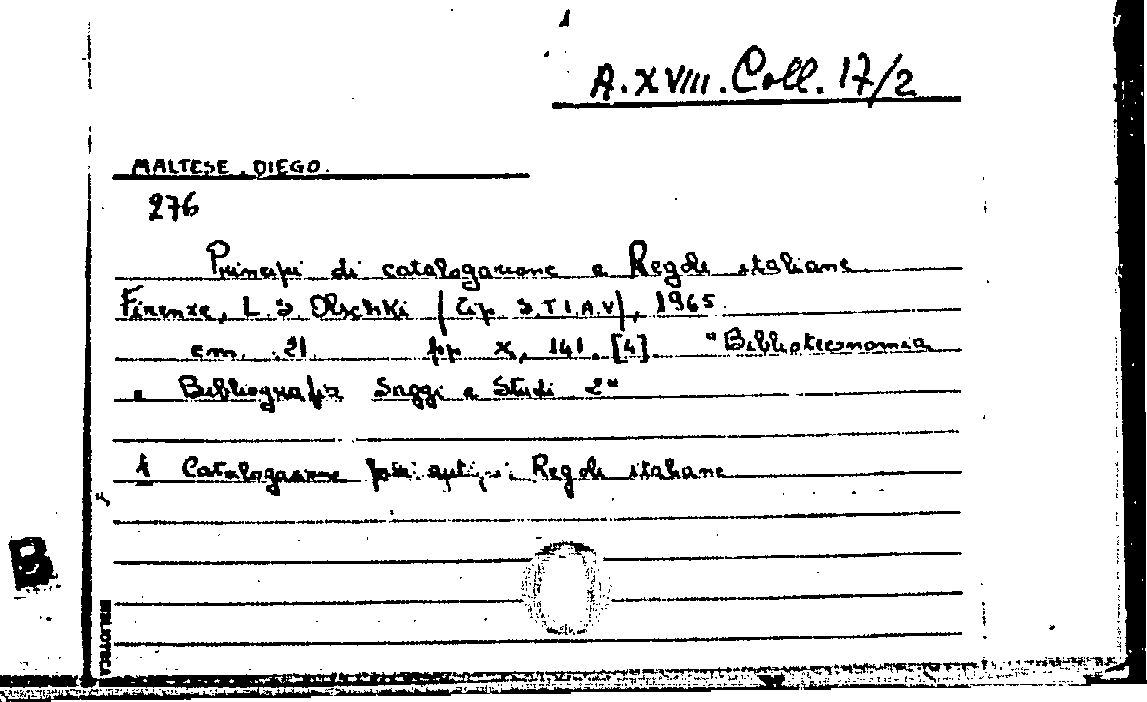 A.XVIII.Coll. 17/2
MALTESE, DIEGO.
276
Principi di catalogazione e Regole italiane
Firenze, L. S. Olschki (tip. S.T.I.A.V), 1965.
cm. 21 pp X, 141. [4]. "Biblioteconomia
e Bibliografia Saggi e Studi 2"
1 Catalogazione Regole italiane
BIBLIOTECA